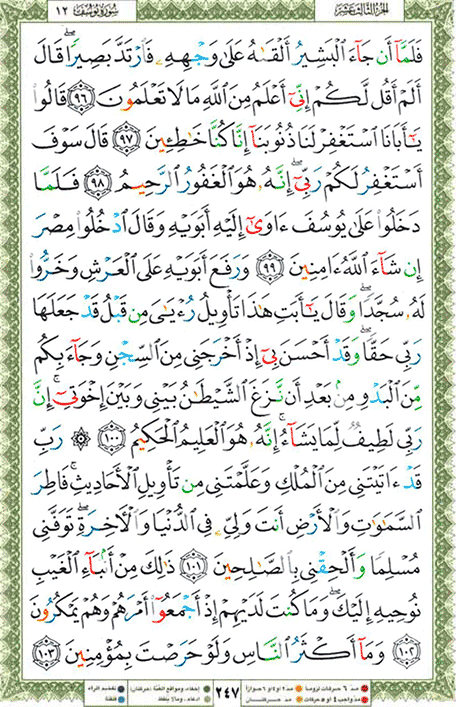 الجزء الثالث عشر سورة يوسف ١٢
فَلَمَّآ أَن جَآءَ ٱلْبَشِيرُ أَلْقَىٰهُ عَلَىٰ وَجْهِهِۦ فَٱرْتَدَّ بَصِيرًاۖ قَالَ
أَلَمْ أَقُل لَّكُمْ إِنِّىٓ أَعْلَمُ مِنَ ٱللَّهِ مَا لَا تَعْلَمُونَ ٩٦ قَالُوا۟
يَٰٓأَبَانَا ٱسْتَغْفِرْ لَنَا ذُنُوبَنَآ إِنَّا كُنَّا خَٰطِـِٔينَ ٩٧ قَالَ سَوْفَ
أَسْتَغْفِرُ لَكُمْ رَبِّىٓۖ إِنَّهُۥ هُوَ ٱلْغَفُورُ ٱلرَّحِيمُ ٩٨ فَلَمَّا
دَخَلُوا۟ عَلَىٰ يُوسُفَ ءَاوَىٰٓ إِلَيْهِ أَبَوَيْهِ وَقَالَ ٱدْخُلُوا۟ مِصْرَ
إِن شَآءَ ٱللَّهُ ءَامِنِينَ ٩٩ وَرَفَعَ أَبَوَيْهِ عَلَى ٱلْعَرْشِ وَخَرُّوا۟
لَهُۥ سُجَّدًاۖ وَقَالَ يَٰٓأَبَتِ هَٰذَا تَأْوِيلُ رُءْيَٰىَ مِن قَبْلُ قَدْ جَعَلَهَا
رَبِّى حَقًّاۖ وَقَدْ أَحْسَنَ بِىٓ إِذْ أَخْرَجَنِى مِنَ ٱلسِّجْنِ وَجَآءَ بِكُم
مِّنَ ٱلْبَدْوِ مِنۢ بَعْدِ أَن نَّزَغَ ٱلشَّيْطَٰنُ بَيْنِى وَبَيْنَ إِخْوَتِىٓۚ إِنَّ
رَبِّى لَطِيفٌ لِّمَا يَشَآءُۚ إِنَّهُۥ هُوَ ٱلْعَلِيمُ ٱلْحَكِيمُ ١٠٠ ۞ رَبِّ
قَدْ ءَاتَيْتَنِى مِنَ ٱلْمُلْكِ وَعَلَّمْتَنِى مِن تَأْوِيلِ ٱلْأَحَادِيثِۚ فَاطِرَ
ٱلسَّمَٰوَٰتِ وَٱلْأَرْضِ أَنتَ وَلِىِّۦ فِى ٱلدُّنْيَا وَٱلْءَاخِرَةِۖ تَوَفَّنِى
مُسْلِمًا وَأَلْحِقْنِى بِٱلصَّٰلِحِينَ ١٠١ ذَٰلِكَ مِنْ أَنۢبَآءِ ٱلْغَيْبِ
نُوحِيهِ إِلَيْكَۖ وَمَا كُنتَ لَدَيْهِمْ إِذْ أَجْمَعُوٓا۟ أَمْرَهُمْ وَهُمْ يَمْكُرُونَ
١٠٢ وَمَآ أَكْثَرُ ٱلنَّاسِ وَلَوْ حَرَصْتَ بِمُؤْمِنِينَ ١٠٣
مد ٦ حركات لزوماً مد ٢ أو ٤ أو ٦ جوازاً ٢٤٧ إخفاء، ومواقع الغنة (حركتان) تفخيم الراء
مد واجب ٤ أو ٥ حركات مد حركتان إدغام، وما لا يلفظ قلقلة